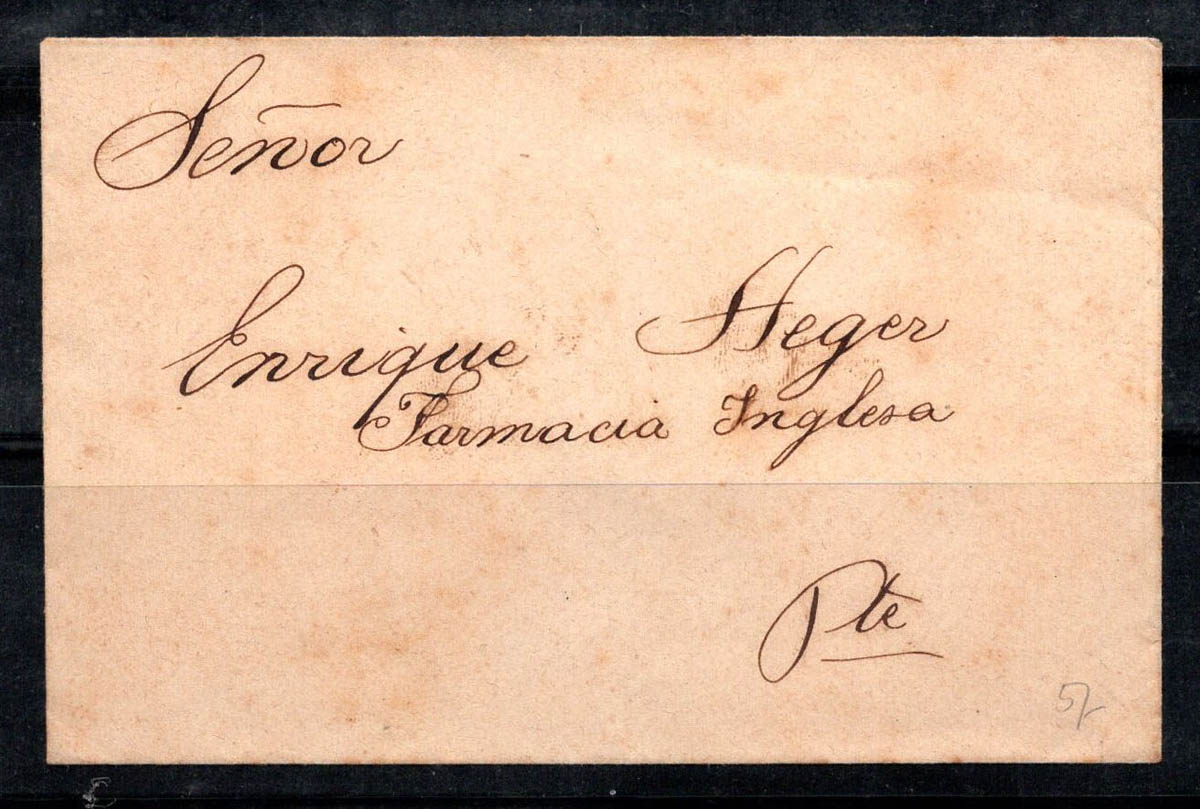 Señor
Enrique Heger
Farmacia Inglesa
Pte